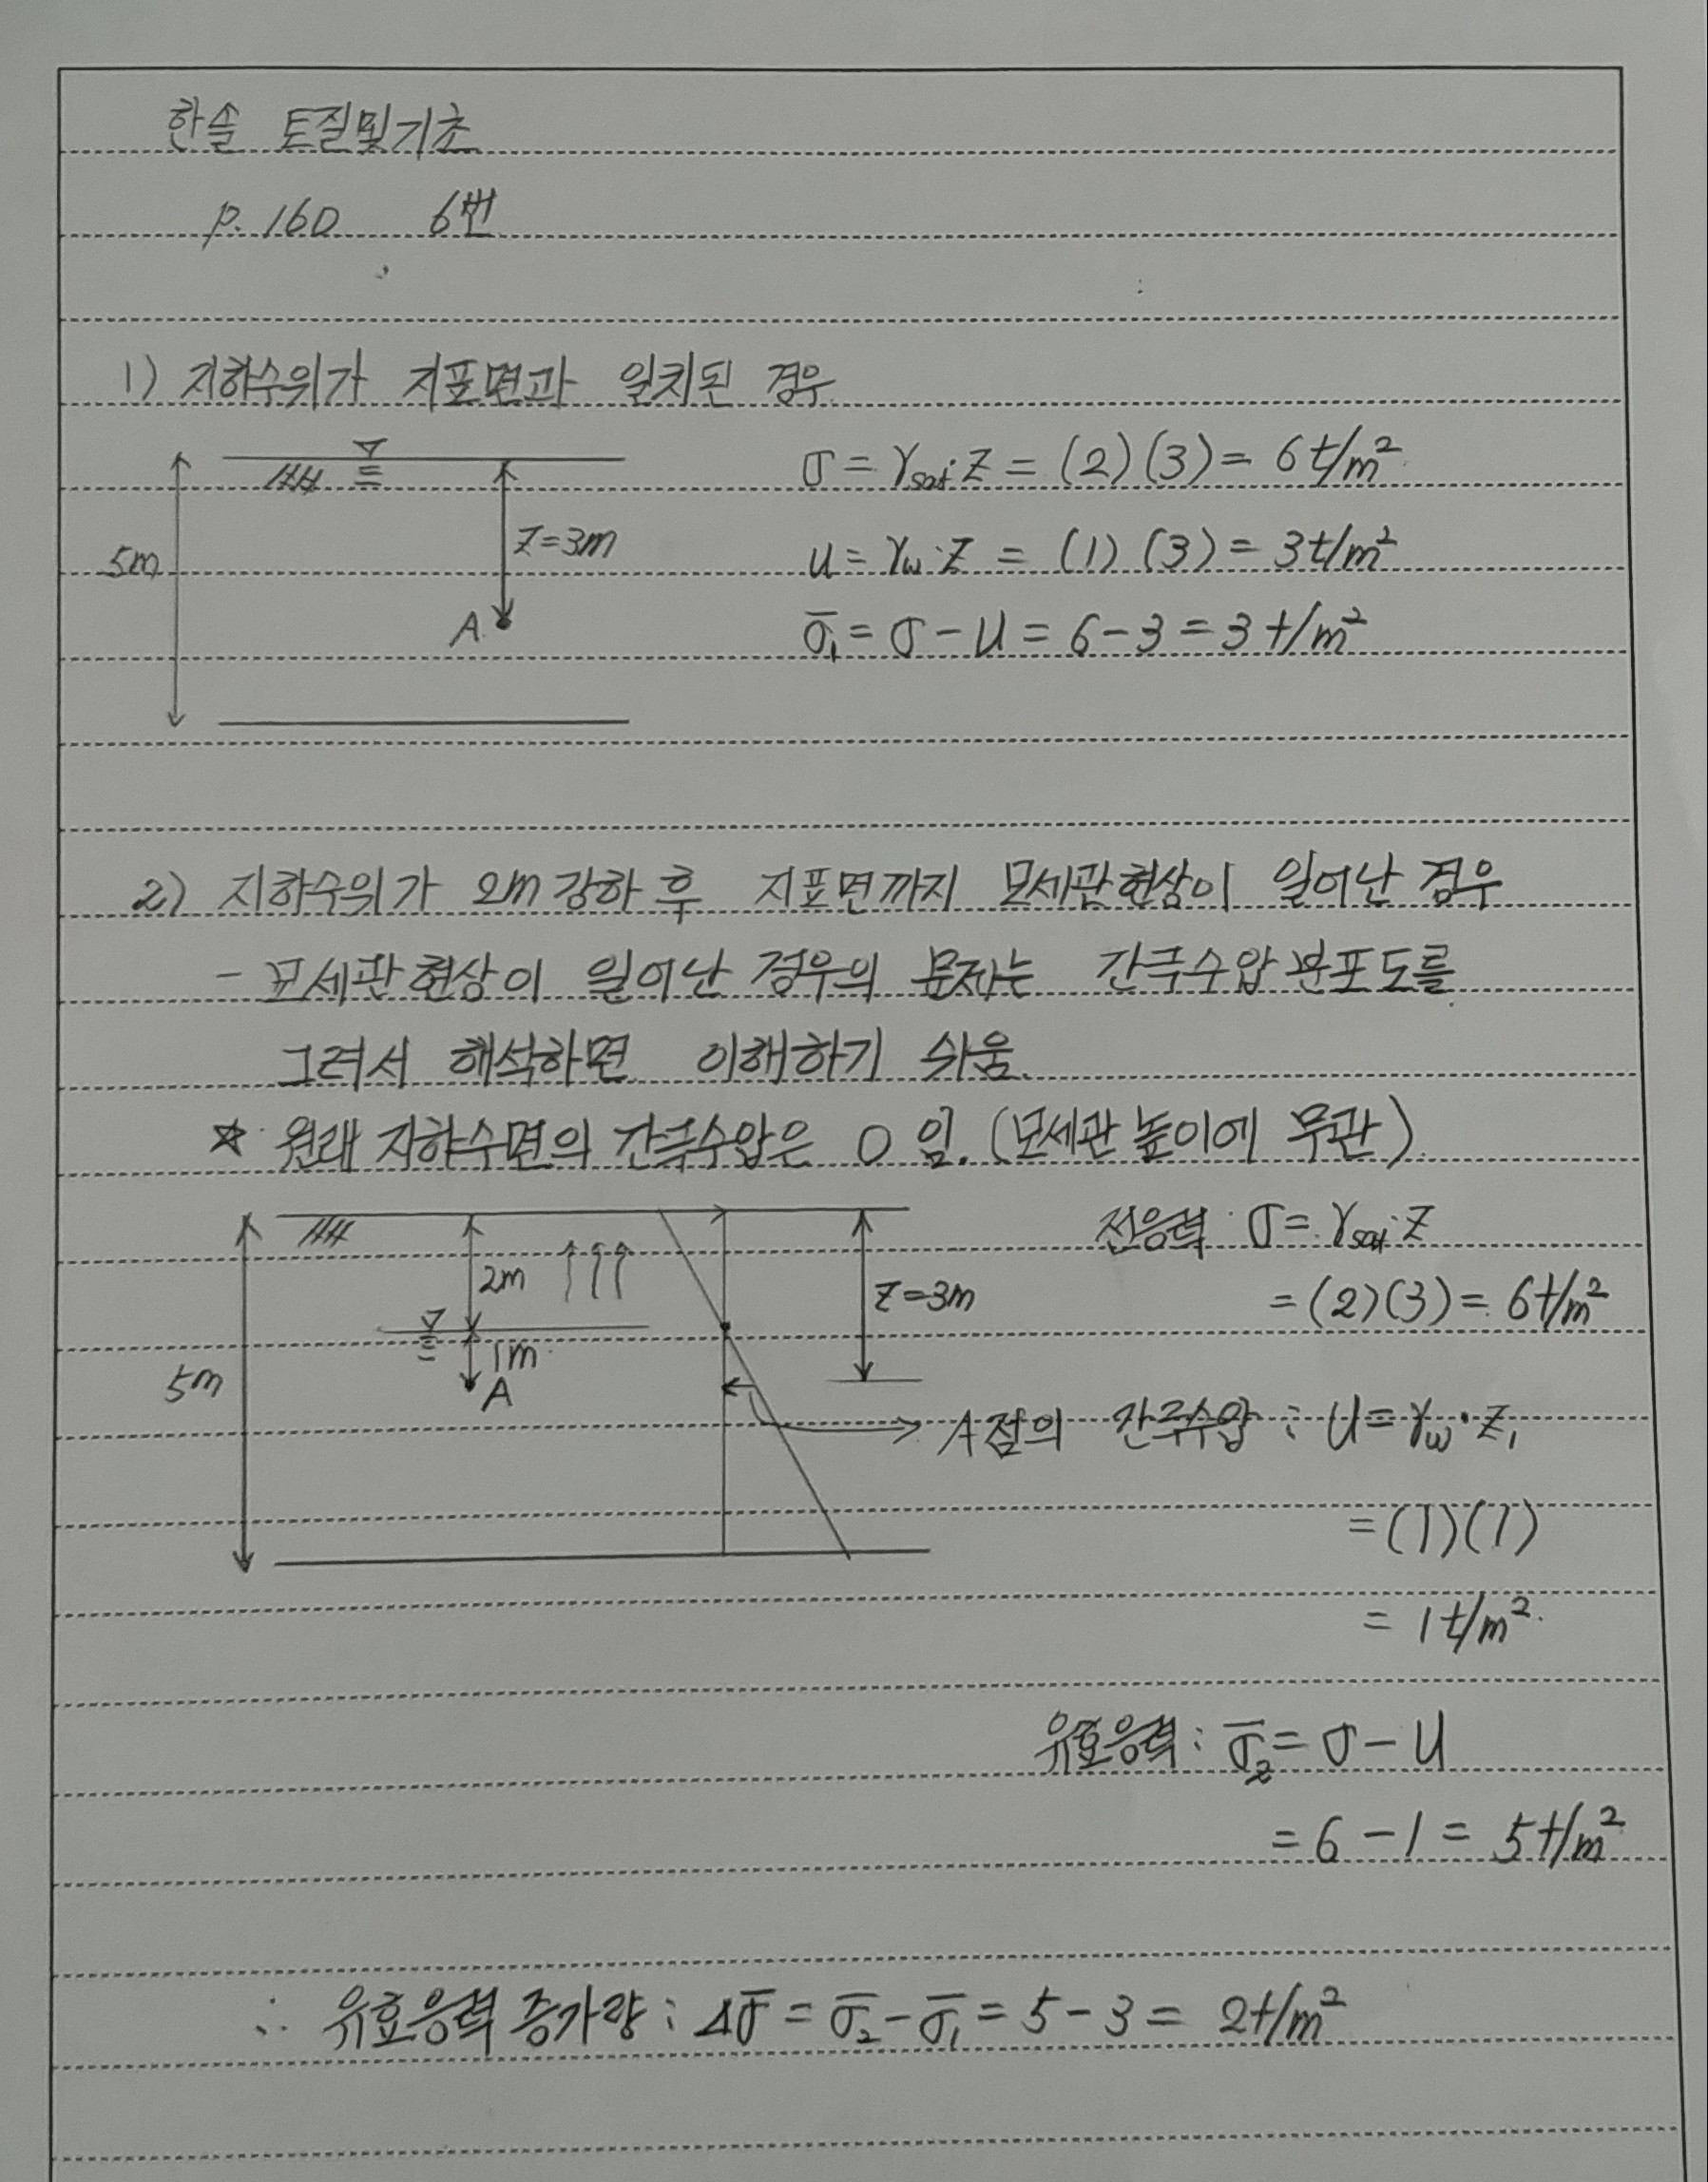 한솔 토질및기초
p.160 6번
1) 지하수위가 지표면과 일치된 경우
5m
Z=3m
A
σ = γsat·Z = (2)(3) = 6t/m²
u = γw·Z = (1)(3) = 3t/m²
σ̄₁ = σ - u = 6-3 = 3t/m²
2) 지하수위가 2m 강하 후 지표면까지 모세관현상이 일어난 경우
- 모세관현상이 일어난 경우의 문제는 간극수압 분포도를
그려서 해석하면 이해하기 쉬움.
☆ 원래 지하수면의 간극수압은 0 임. (모세관 높이에 무관)
5m
2m
1m
A
Z=3m
전응력 : σ = γsat·Z
= (2)(3) = 6t/m²
A점의 간극수압 : u = γw·Z₁
= (1)(1)
= 1t/m²
유효응력 : σ̄₂ = σ - u
= 6-1 = 5t/m²
∴ 유효응력 증가량 : Δσ̄ = σ̄₂ - σ̄₁ = 5-3 = 2t/m²